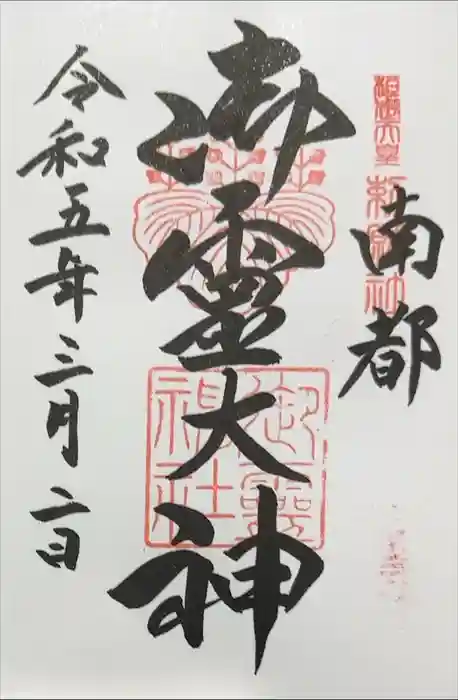 南都
御霊大神
令和五年三月二日
御霊
神社